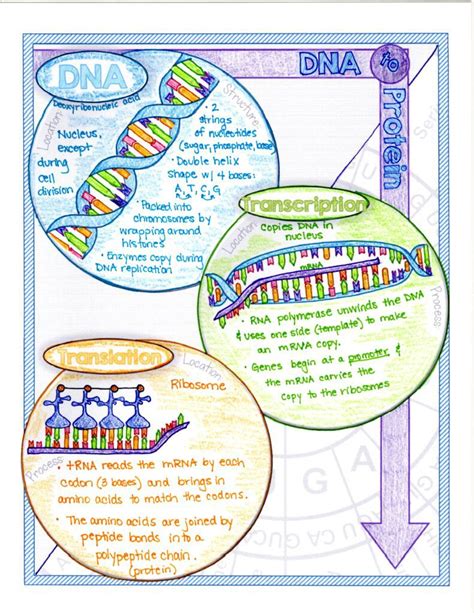 DNA to Protein
DNA
Deoxyribonucleic acid
Location
Structure
Nucleus,
except
during
cell
division
• 2
strings
of nucleotides
(sugar, phosphate, base)
• Double helix
shape w/ 4 bases:
A, T, C, G
• Packed into
chromosomes by
wrapping around
histones
• Enzymes copy during
DNA replication
Transcription
Location
Copies DNA in
nucleus
mRNA
Process
• RNA polymerase unwinds the DNA
& uses one side (template) to make
an mRNA copy.
• Genes begin at a promoter, &
the mRNA carries the
copy to the ribosomes
Translation
Location
Ribosome
Process
• tRNA reads the mRNA by each
codon (3 bases) and brings in
amino acids to match the codons.
• The amino acids are joined by
peptide bonds into a
polypeptide chain.
(protein)
G A